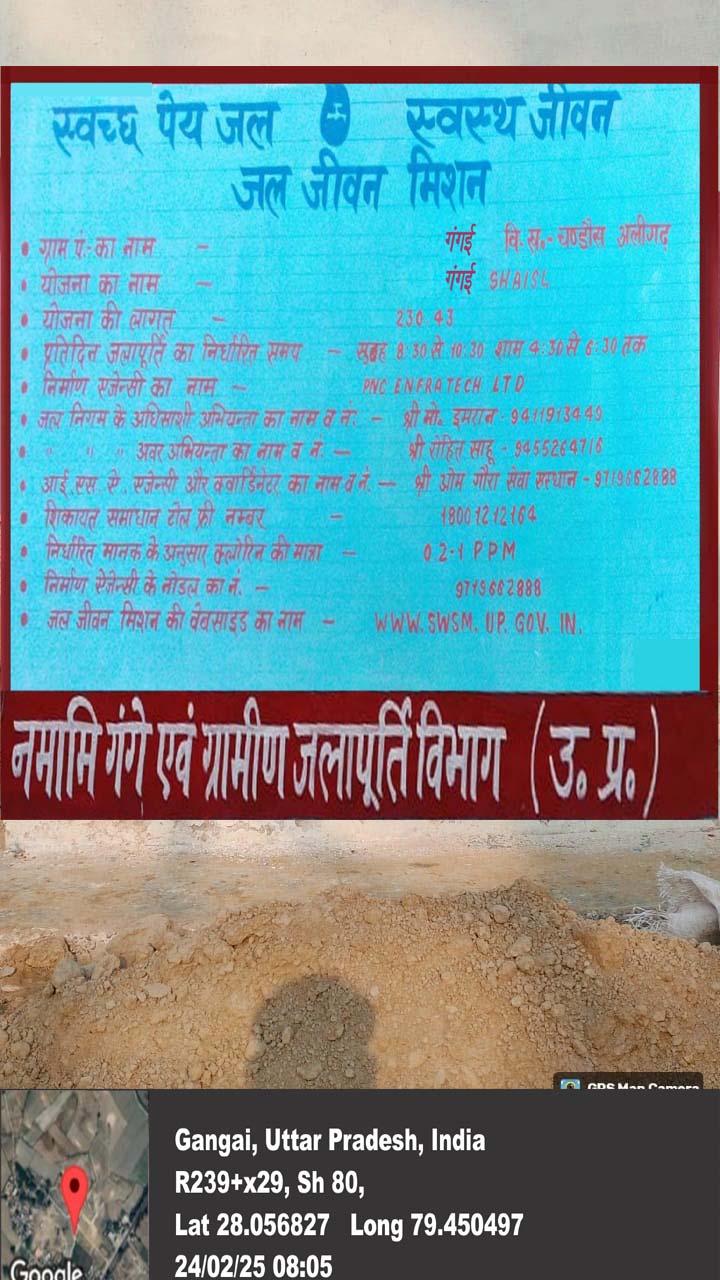 स्वच्छ पेय जल स्वस्थ जीवन
जल जीवन मिशन
• ग्राम पं॰-का नाम - गंगई वि.ख.- चण्डौस अलीगढ़
• योजना का नाम - गंगई SHAISL
• योजना की लागत - 230.43
• प्रतिदिन जलापूर्ति का निर्धारित समय - सुबह 8:30 से 10:30 शाम 4:30 से 6:30 तक
• निर्माण एजेन्सी का नाम - PNC ENFRATECH LTD
• जल निगम के अधिसाशी अभियन्ता का नाम व नं. - श्री मो. इमरान - 9411913449
• " " " अवर अभियन्ता का नाम व नं. - श्री रोहित साहू - 9455264716
• आई.एस.ए. एजेन्सी और क्वार्डिनेटर का नाम व नं. - श्री ओम गौरा सेवा संस्थान - 9719662888
• शिकायत समाधान टोल फ्री नम्बर - 18001212164
• निर्धारित मानक के अनुसार क्लोरिन की मात्रा - 0 2-1 PPM
• निर्माण ऐजेन्सी के नोडल का नं. - 9719662888
• जल जीवन मिशन की वेबसाइड का नाम - WWW.SWSM.UP.GOV.IN.
नमामि गंगे एवं ग्रामीण जलापूर्ति विभाग (उ. प्र.)
GPS Map Camera
Gangai, Uttar Pradesh, India
R239+x29, Sh 80,
Lat 28.056827 Long 79.450497
24/02/25 08:05
Google